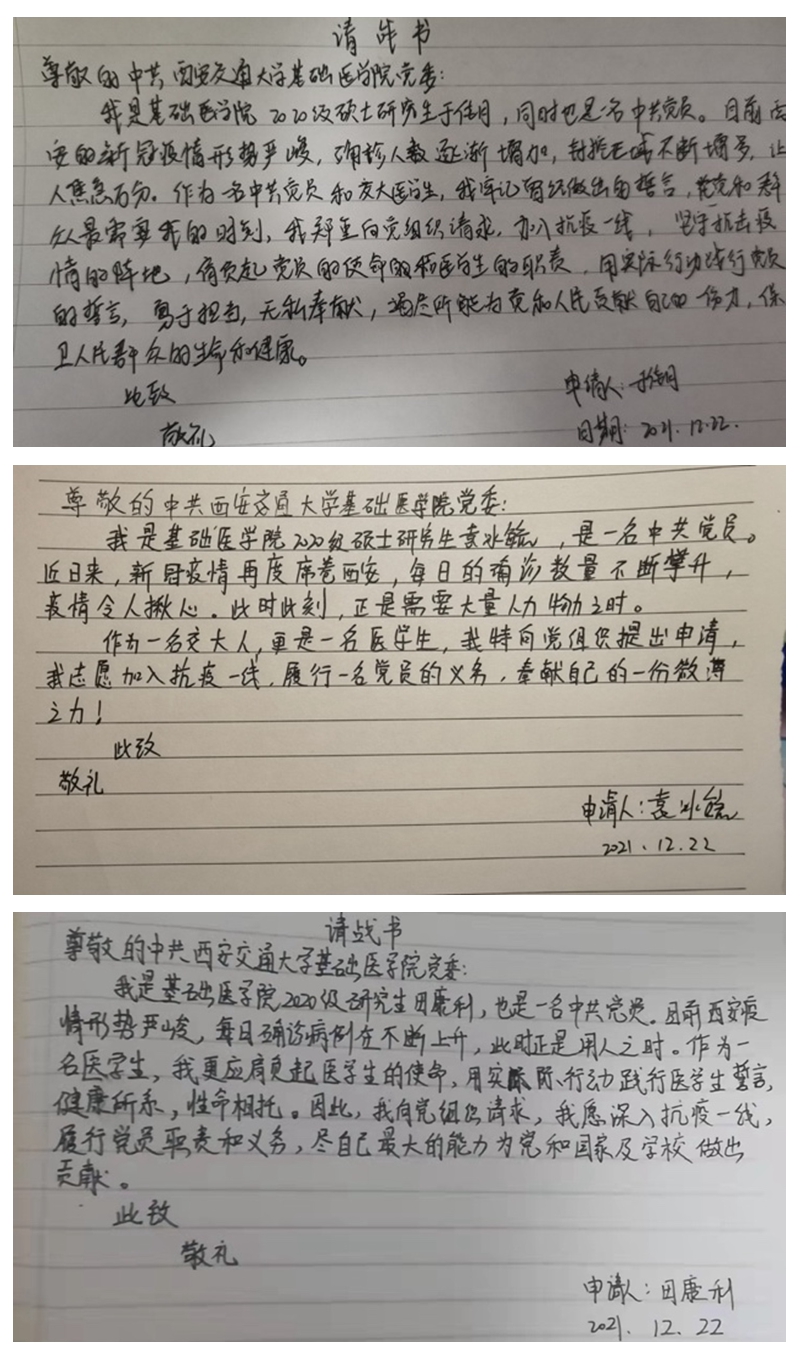 请战书
尊敬的中共西安交通大学基础医学院党委:
我是基础医学院2020级硕士研究生于佳月,同时也是一名中共党员。目前西
安的新冠疫情形势严峻,确诊人数逐渐增加,封控区域不断增多,让
人焦急万分。作为一名中共党员和交大医学生,我牢记曾经做出的誓言,在党和群
众最需要我的时刻,我郑重向党组织请求,加入抗疫一线,坚守抗击疫
情的阵地,肩负起党员的使命的和医学生的职责,用实际行动践行党员
的誓言,勇于担当,无私奉献,竭尽所能为党和人民贡献自己的一份力,保
卫人民群众的生命和健康。
此致
申请人:
敬礼
日期:2021.12.22.
尊敬的中共西安交通大学基础医学院党委:
我是基础医学院2020级硕士研究生袁冰,是一名中共党员。
近日来,新冠疫情再度席卷西安,每日的确诊数量不断攀升,
疫情令人揪心。此时此刻,正是需要大量人力物力之时。
作为一名交大人,更是一名医学生,我特向党组织提出申请,
我志愿加入抗疫一线,履行一名党员的义务,奉献自己的一份微薄
之力!
此致
敬礼
申请人:袁冰
2021.12.22
请战书
尊敬的中共西安交通大学基础医学院党委:
我是基础医学院2020级研究生田康利,也是一名中共党员。目前西安疫
情形势严峻,每日确诊病例在不断上升,此时正是用人之时。作为一
名医学生,我更应肩负起医学生的使命,用实际行动践行医学生誓言,
健康所系,性命相托。因此,我向党组织请求,我愿深入抗疫一线,
履行党员职责和义务,尽自己最大的能力为党和国家及学校做出
贡献。
此致
敬礼
申请人:田康利
2021.12.22